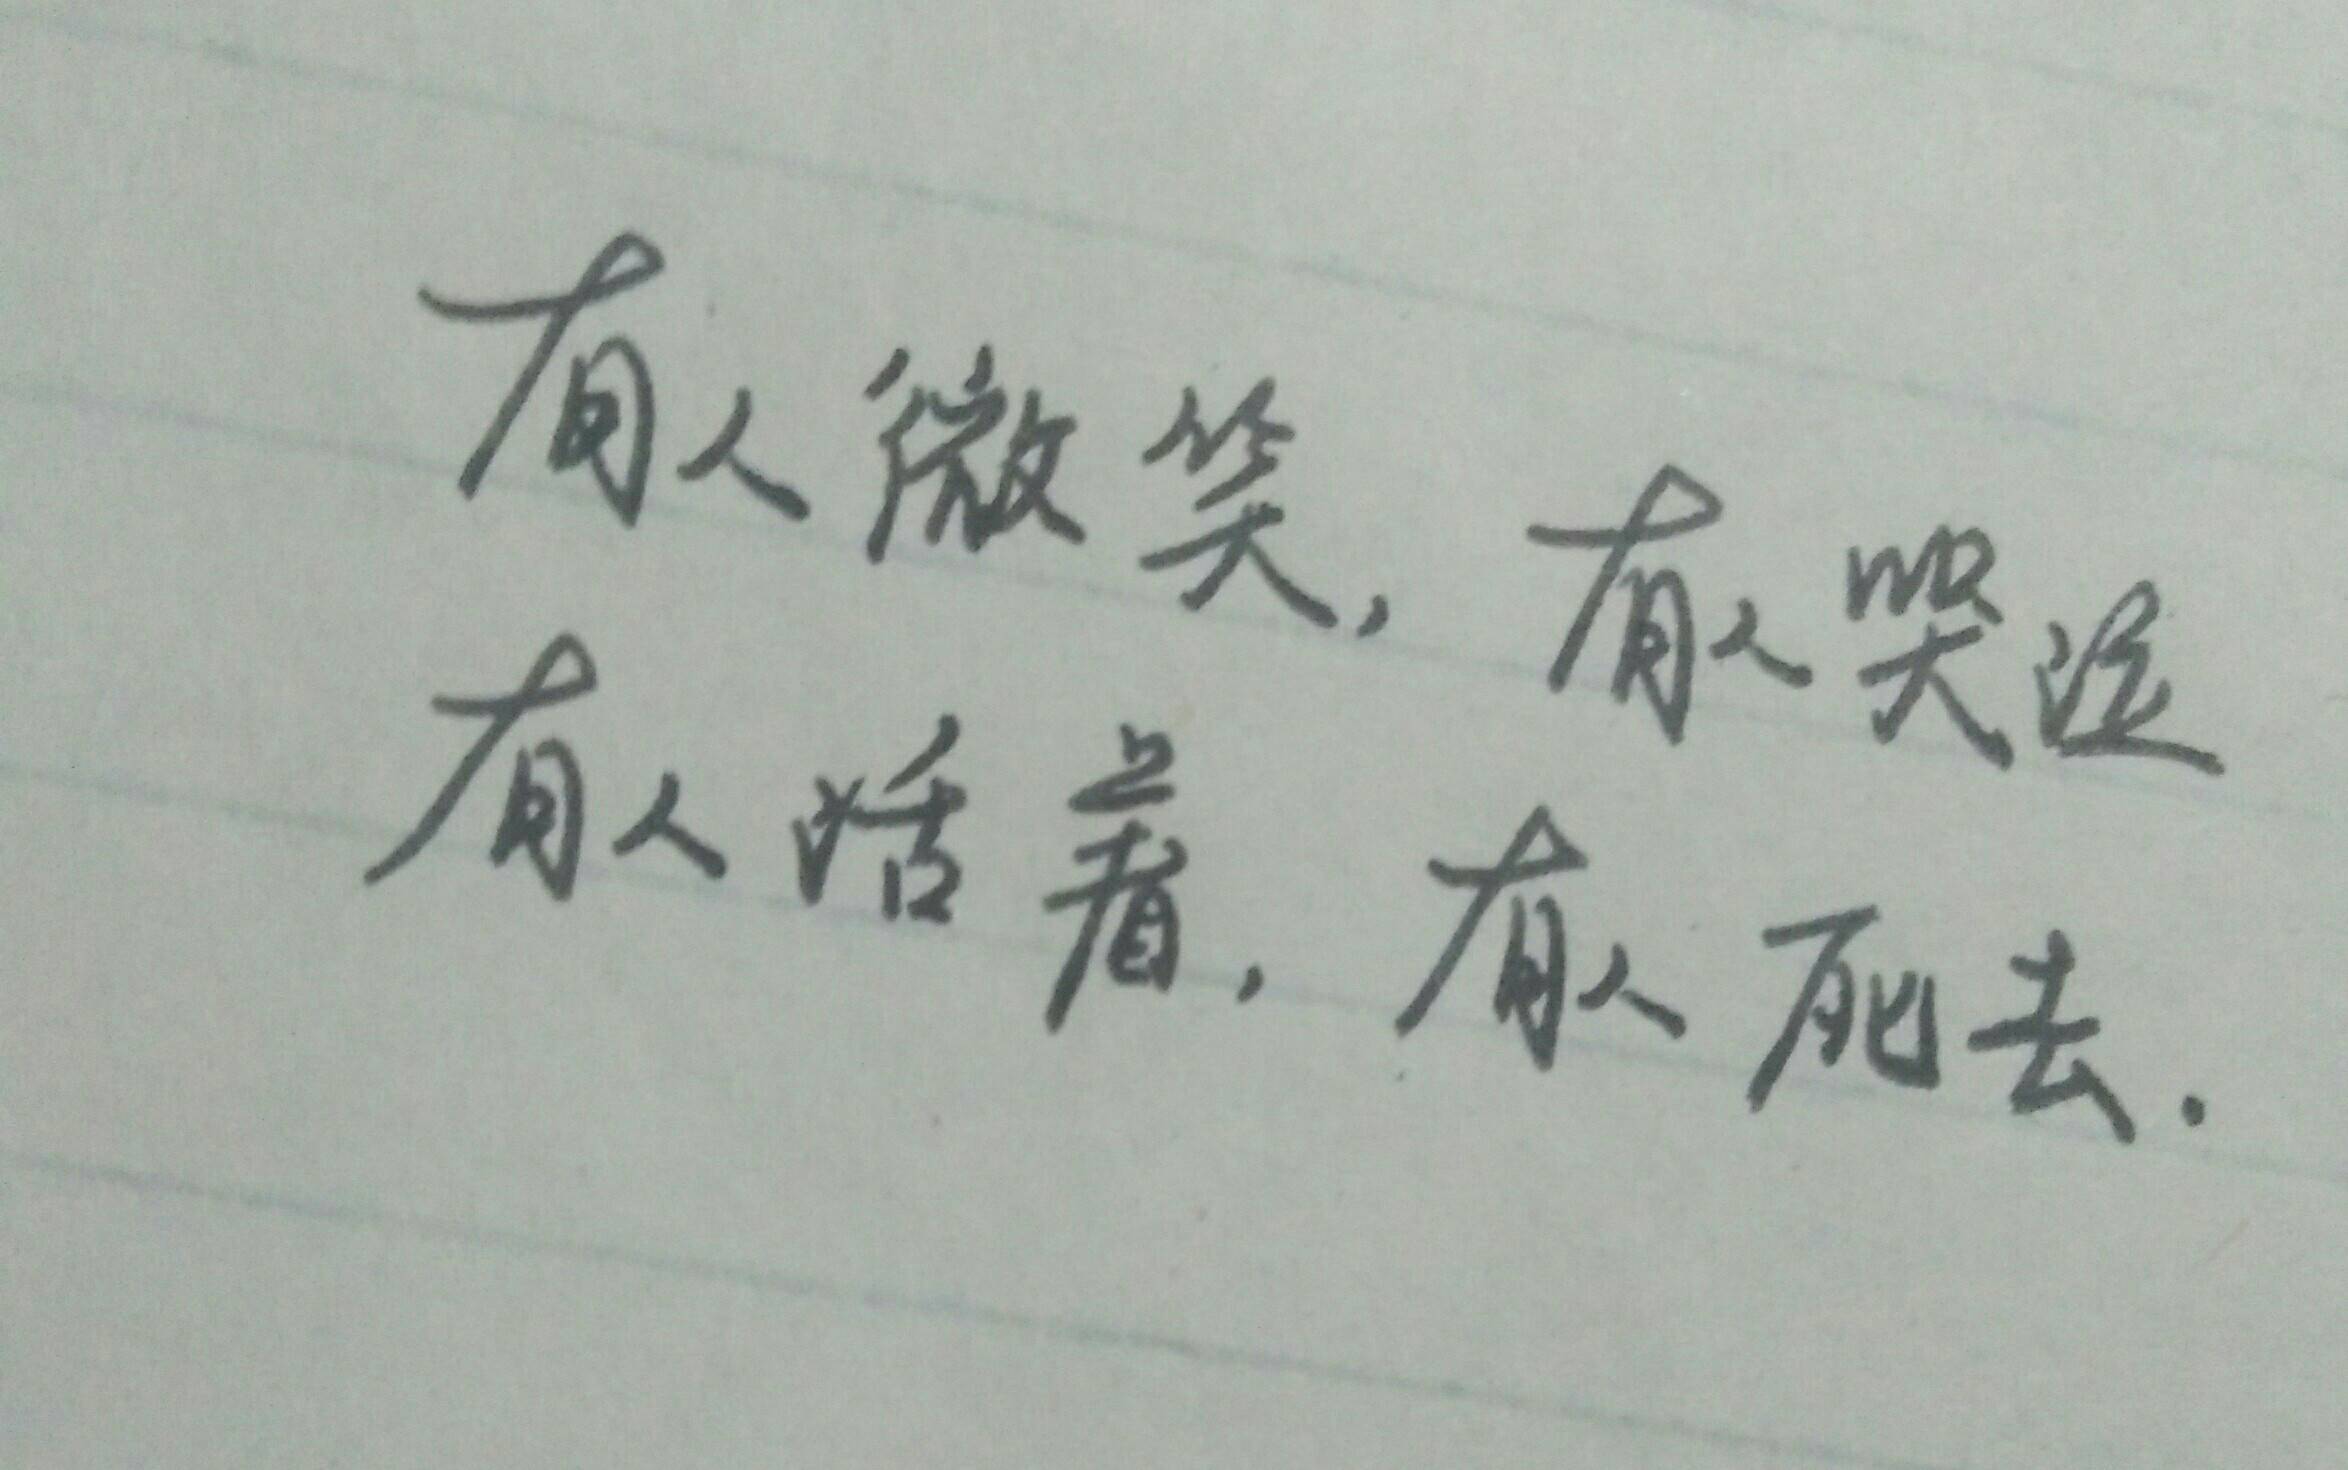 有人微笑，有人哭泣
有人活着，有人死去.